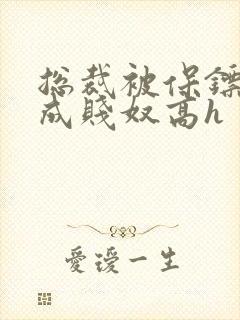 总裁被保镖
成贱奴高h
爱漫一生